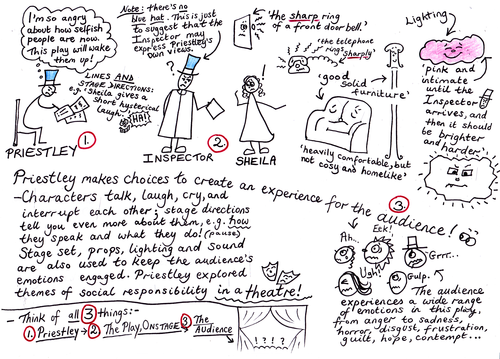 I'm so angry
about how selfish
people are now.
This play will wake
them up!
Note: there's no
blue hat. This is just
to suggest that the
Inspector may
express Priestley's
own views.
LINES AND
STAGE DIRECTIONS:
e.g. 'Sheila gives a
short hysterical
laugh.'
HA!
PRIESTLEY
1.
?
INSPECTOR
2.
SHEILA
'the sharp ring
of a front doorbell.'
'the telephone
rings sharply'
'good
solid
furniture'
'heavily comfortable, but
not cosy and homelike'
Lighting
'pink and
intimate
until the
Inspector
arrives, and
then it should
be brighter
and harder'.
Priestley makes choices to create an experience for the audience!
-Characters talk, laugh, cry, and
interrupt each other; stage directions
tell you even more about them, e.g. how
they speak and what they do! (pause)
Stage set, props, lighting and sound
are also used to keep the audience's
emotions engaged. Priestley explored
themes of social responsibility in a theatre!
3.
Ah...
Eek!
Grrr...
Ugh!
Gulp.
The audience
experiences a wide range
of emotions in this play,
from anger to sadness,
horror, disgust, frustration,
guilt, hope, contempt...
- Think of all 3 things:-
1. Priestley → 2. The Play, ONSTAGE → 3. The
Audience
! ? ! ?